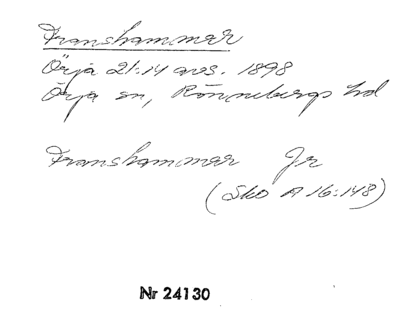 Franshammar
Örja 21:14 avs. 1898
Örja sn, Rönnebergs hd
Franshammar Jr
(Sko A 16:148)
Nr 24130